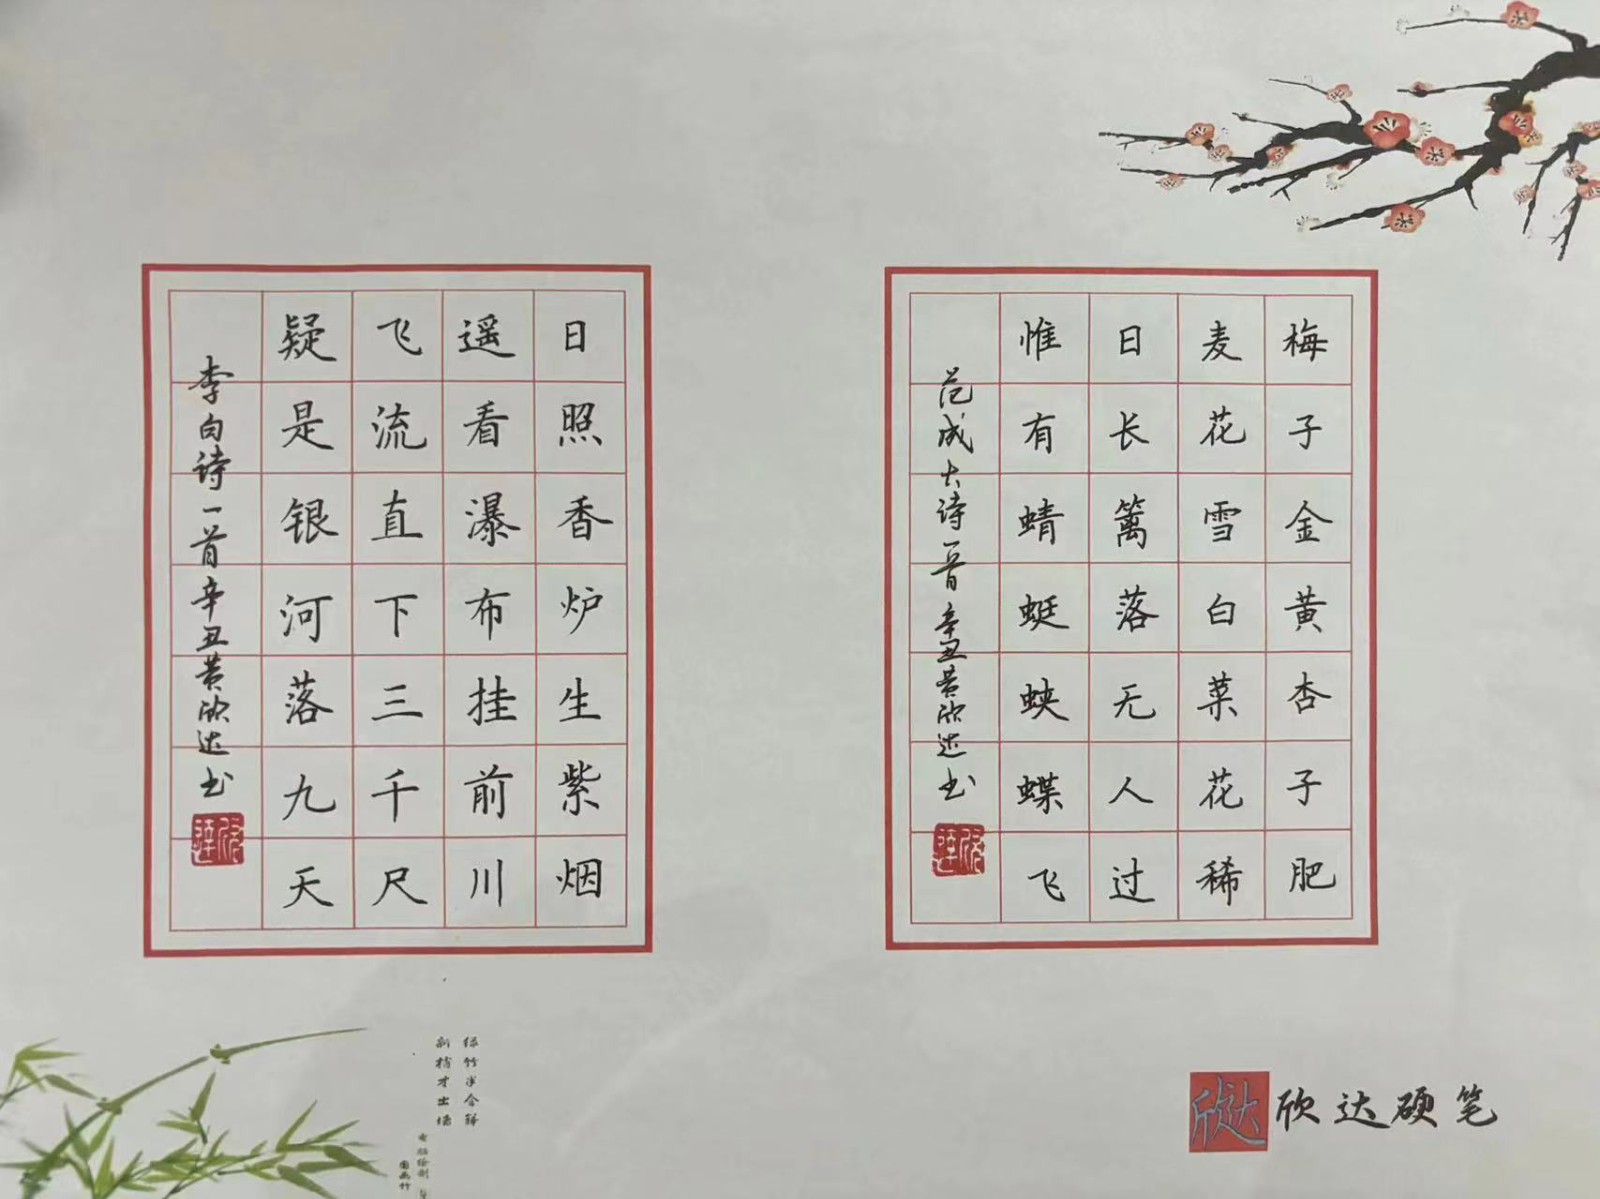 梅子金黄杏子肥
麦花雪白菜花稀
日长篱落无人过
惟有蜻蜓蛱蝶飞
范成大诗一首辛丑黄欣达书
日照香炉生紫烟
遥看瀑布挂前川
飞流直下三千尺
疑是银河落九天
李白诗一首辛丑黄欣达书
绿竹半含箨
新梢才出墙
欣达
欣达硬笔